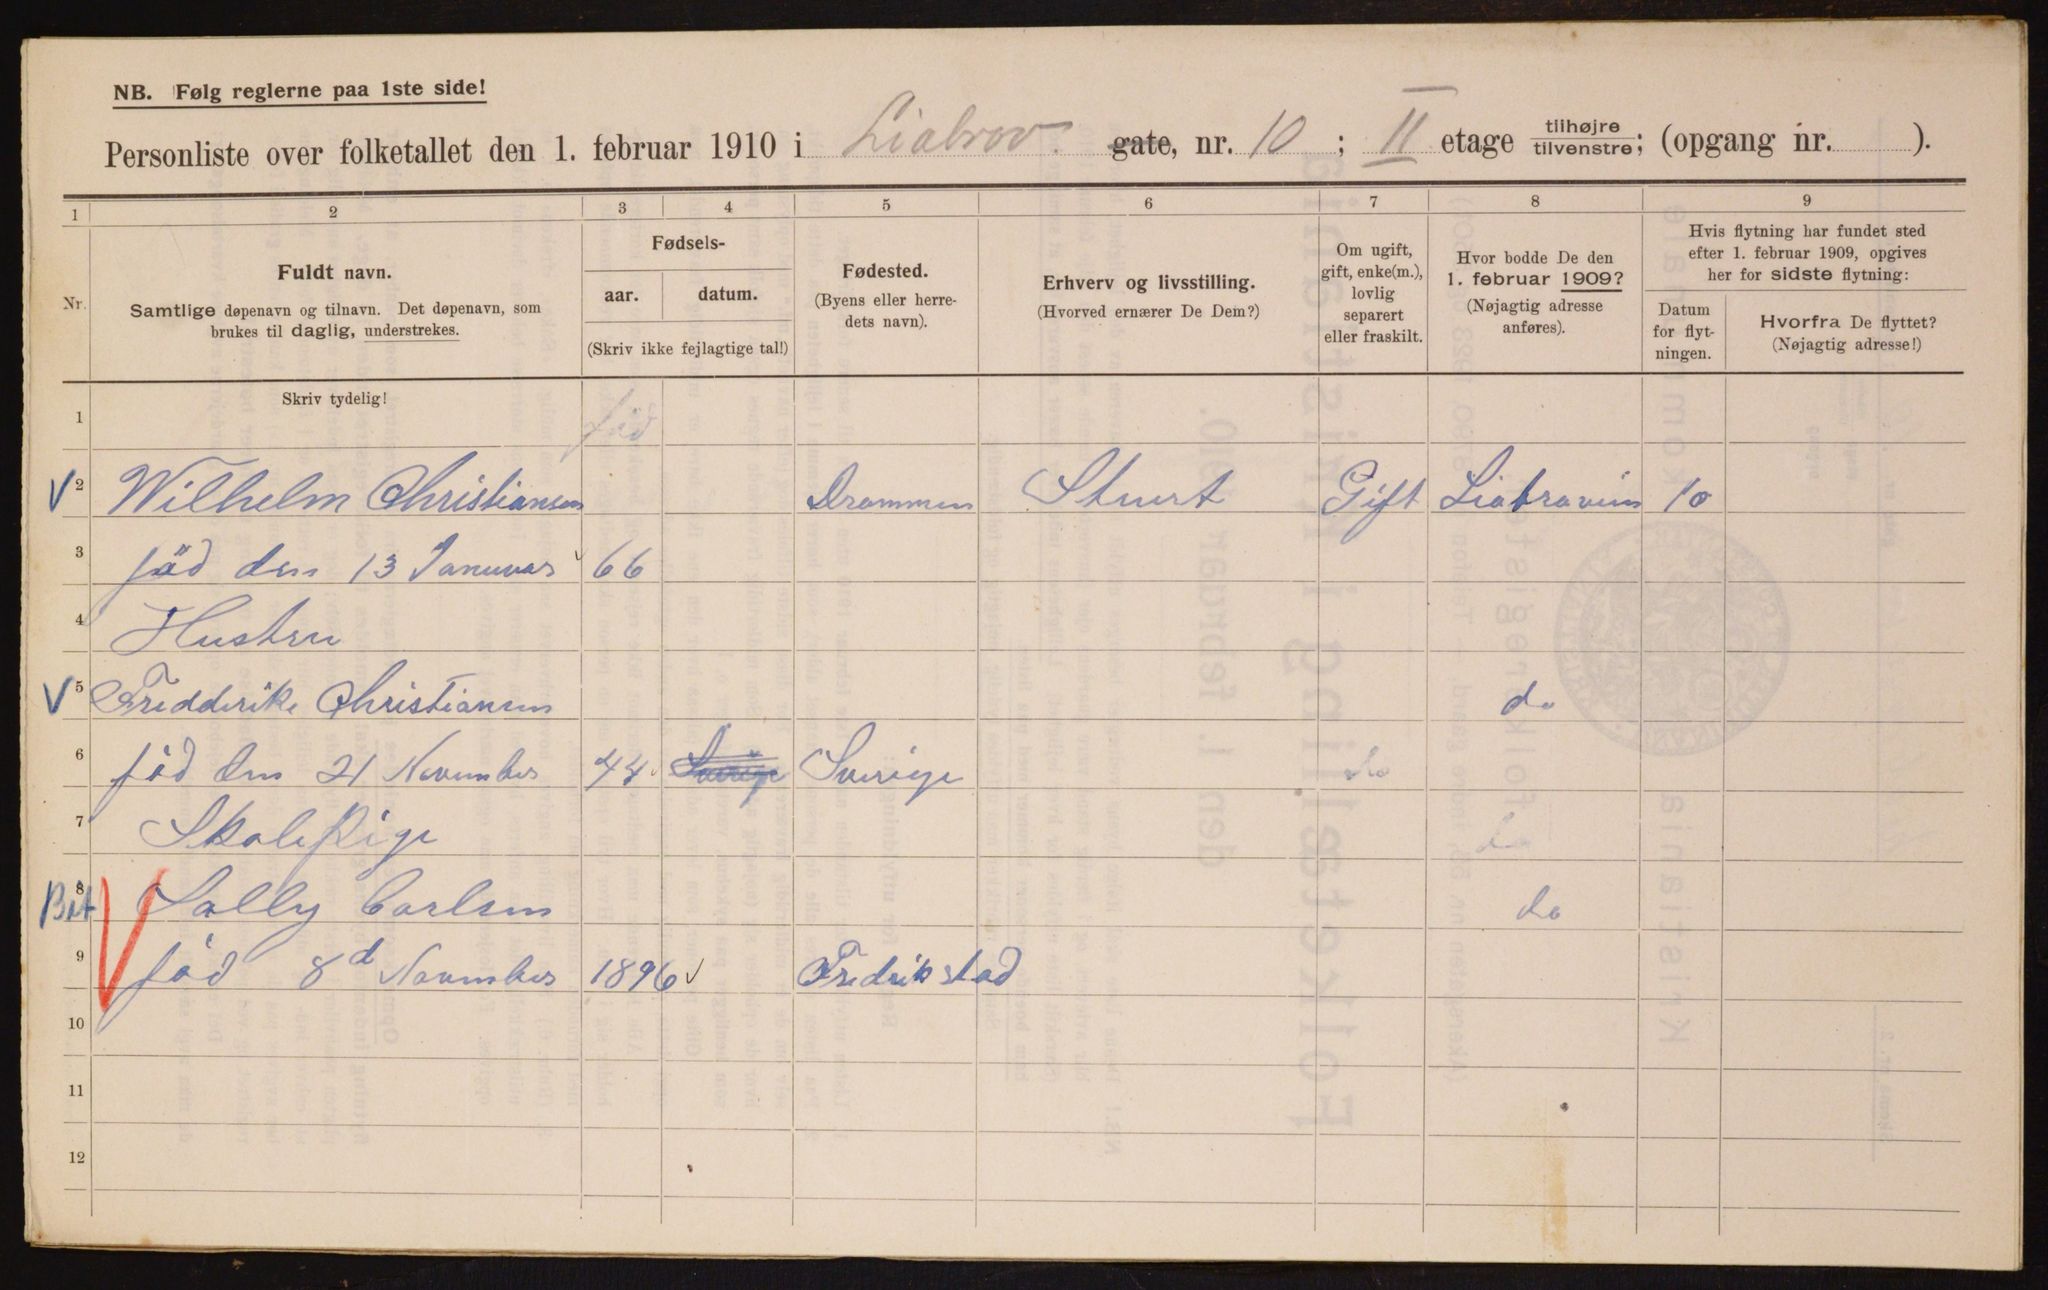 NB. Følg reglerne paa 1ste side!
Personliste over folketallet den 1. februar 1910 i Liabrov. gate, nr. 10 ; II II etage tilhøjre tilvenstre; (opgang nr. ).
1 2 3 4 5 6 7 8 9
Nr.
Fuldt navn.
Samtlige døpenavn og tilnavn. Det døpenavn, som
brukes til daglig, understrekes.
Fødsels-
aar. datum.
(Skriv ikke fejlagtige tal!)
Fødested.
(Byens eller herre-
dets navn).
Erhverv og livsstilling.
(Hvorved ernærer De Dem?)
Om ugift,
gift, enke(m.),
lovlig
separert
eller fraskilt.
Hvor bodde De den
1. februar 1909?
(Nøjagtig adresse
anføres).
Hvis flytning har fundet sted
efter 1. februar 1909, opgives
her for sidste flytning:
Datum
for flyt-
ningen.
Hvorfra De flyttet?
(Nøjagtig adresse!)
Skriv tydelig!
1 fød
2 Wilhelm Christiansen Drammen Stuert Gift Liabravein 10
3 fød den 13 Januvar 66
4 Hustru
5 Fredderike Christiansen do
6 fød den 21 November 44 Sverige Sverige do
7 SkolePige do
Bet 8 Sally Carlsen do
9 fød 8d November 1896 Fredrikstad
10
11
12